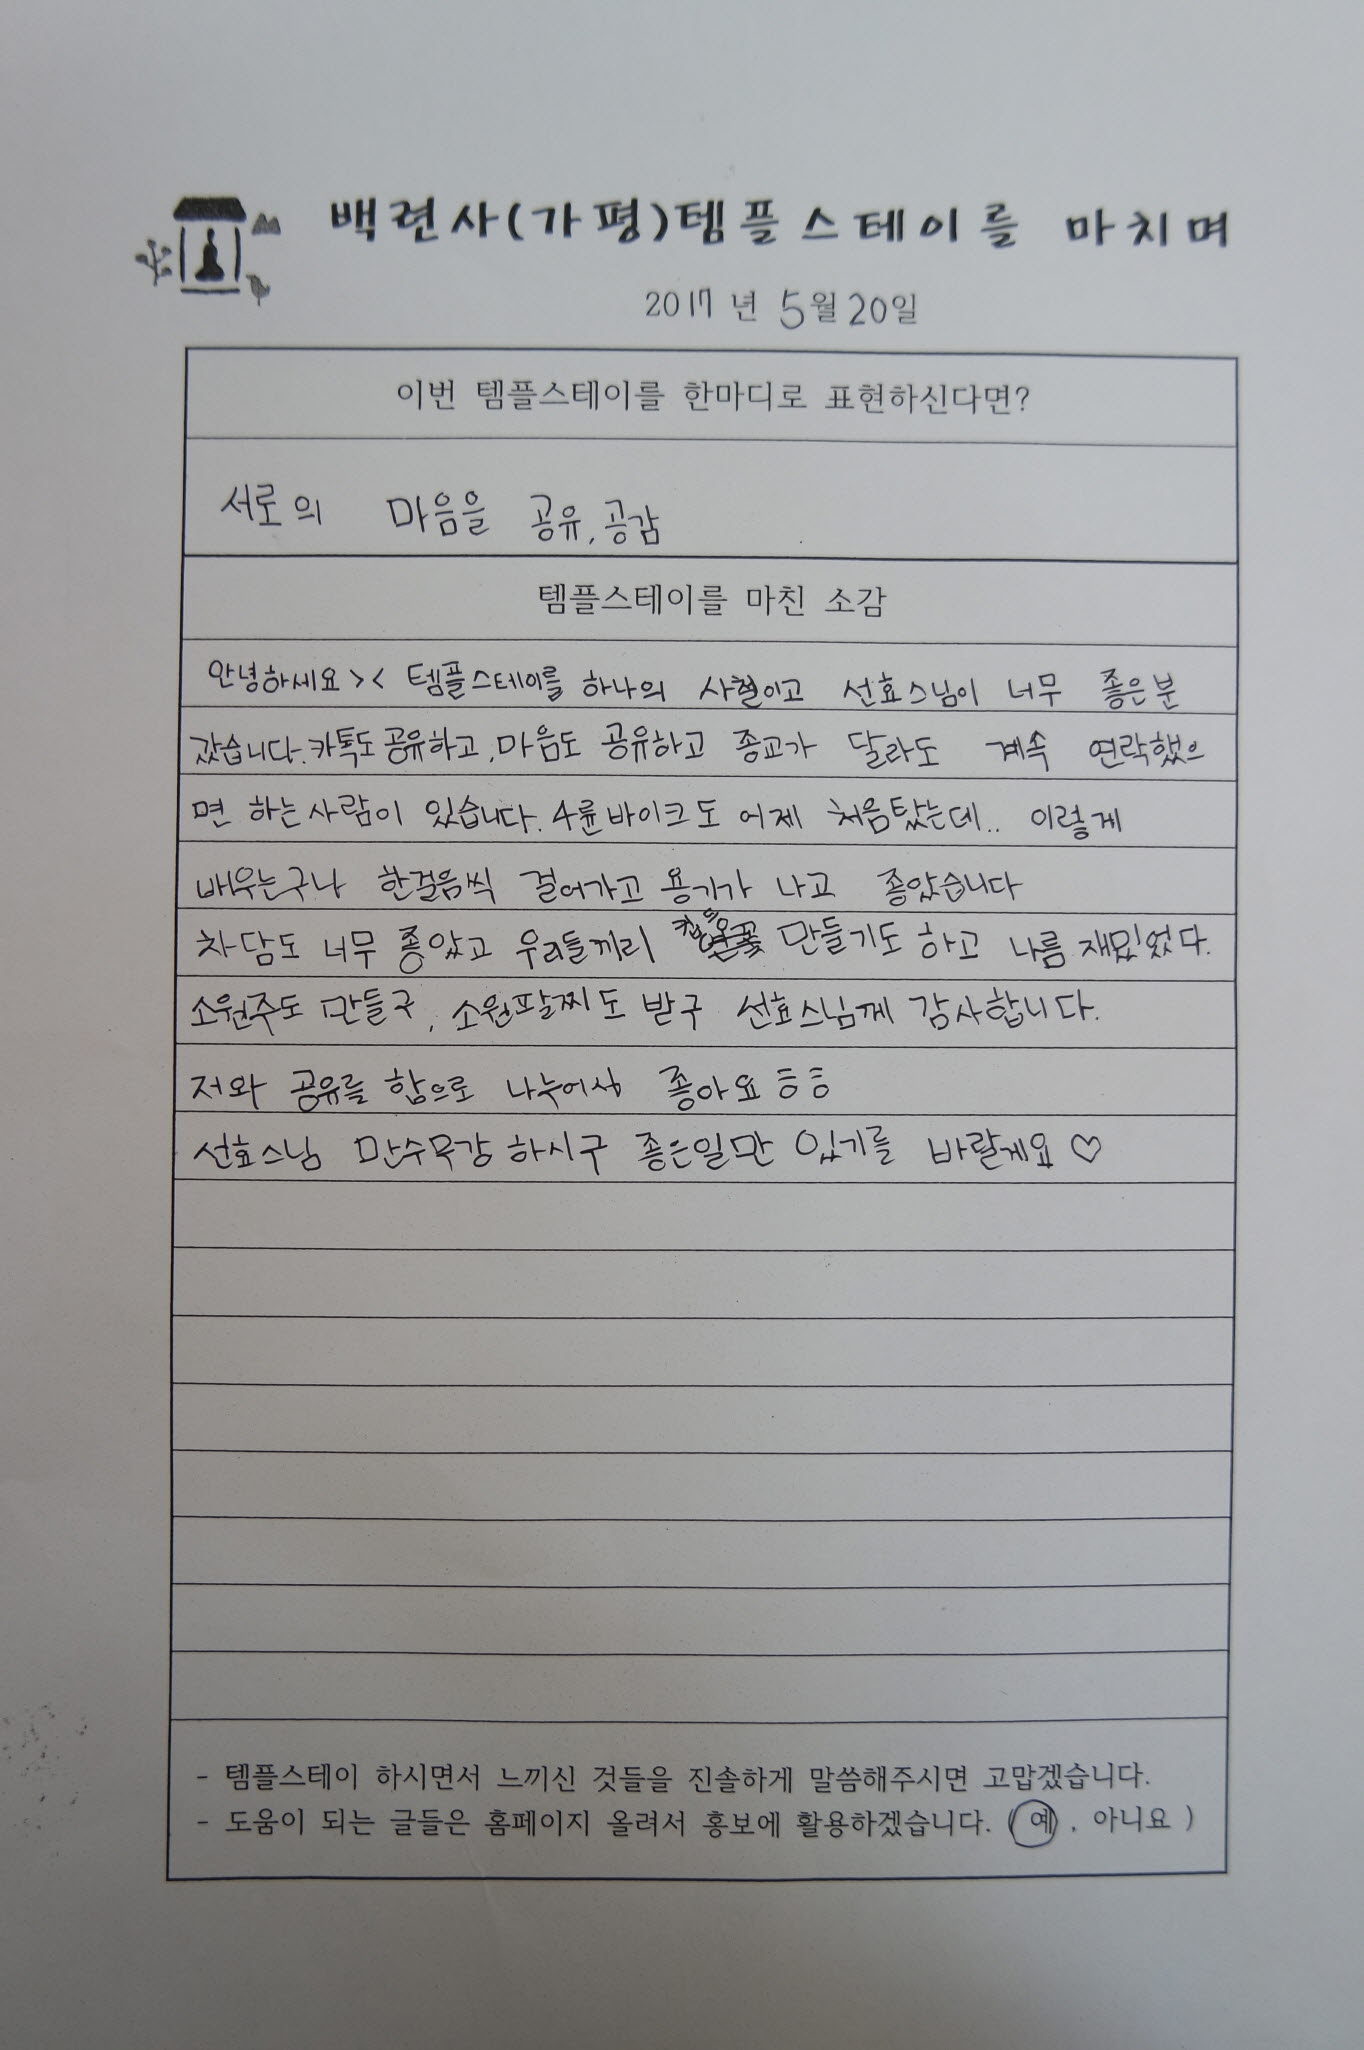 백련사(가평)템플스테이를 마치며
2017년 5월 20일
이번 템플스테이를 한마디로 표현하신다면?
서로의 마음을 공유, 공감
템플스테이를 마친 소감
안녕하세요>< 템플스테이를 하나의 사철이고 선효스님이 너무 좋은분
갔습니다. 카톡도 공유하고, 마음도 공유하고 종교가 달라도 계속 연락했으
면 하는사람이 있습니다. 4륜바이크도 어제 처음탔는데.. 이렇게
배우는구나 한걸음씩 걸어가고 용기가 나고 좋았습니다
차담도 너무 좋았고 우리들끼리 만들기도 하고 나름 재밌었다.
소원주도 만들구, 소원팔찌도 받구 선효스님께 감사합니다.
저와 공유를 함으로 나누어서 좋아요 ㅎㅎ
선효스님 만수무강 하시구 좋은일만 있기를 바랄게요 ♡
- 템플스테이 하시면서 느끼신 것들을 진솔하게 말씀해주시면 고맙겠습니다.
- 도움이 되는 글들은 홈페이지 올려서 홍보에 활용하겠습니다. ( 예 , 아니요 )